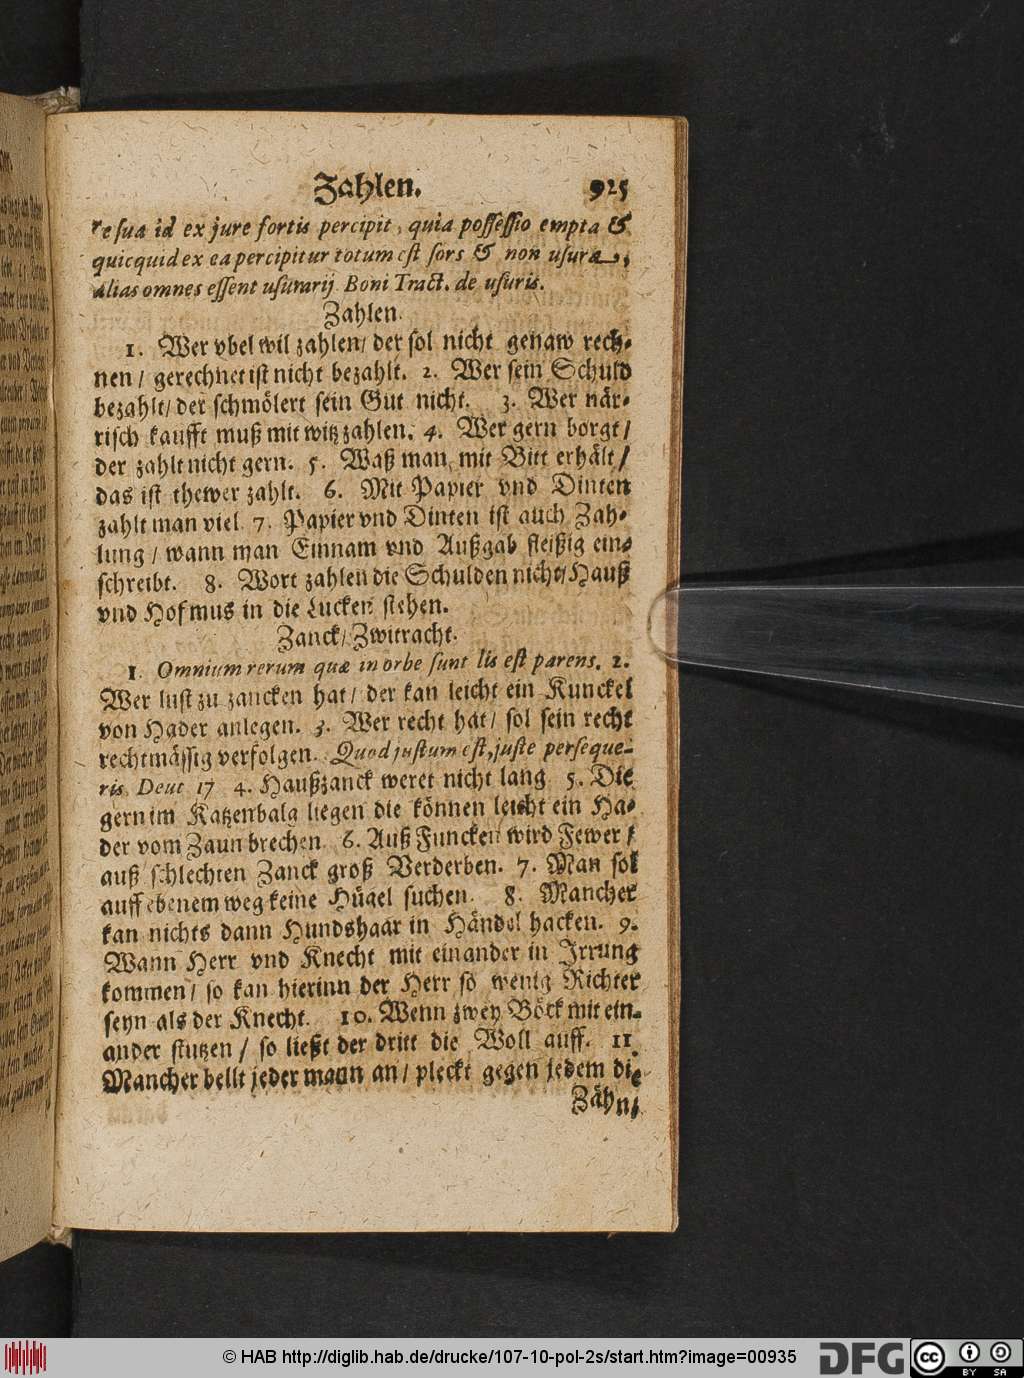 Zahlen. 925
re sua id ex jure sortis percipit, quia possessio empta &
quicquid ex ea percipitur totum est sors & non usuræ,
alias omnes essent usurarij. Boni Tract. de usuris.
Zahlen.
1. Wer vbel wil zahlen/ der sol nicht genaw rech-
nen/ gerechnet ist nicht bezahlt. 2. Wer sein Schuld
bezahlt/ der schmölert sein Gut nicht. 3. Wer när-
risch kaufft muß mit witz zahlen. 4. Wer gern borgt/
der zahlt nicht gern. 5. Waß man mit Bitt erhält/
das ist thewer zahlt. 6. Mit Papier vnd Dinten
zahlt man viel 7. Papier vnd Dinten ist auch Zah-
lung/ wann man Einnam vnd Außgab fleißig ein-
schreibt. 8. Wort zahlen die Schulden nicht/ Hauß
vnd Hof mus in die Lucken stehen.
Zanck/ Zwitracht.
1. Omnium rerum quæ in orbe sunt lis est parens. 2.
Wer lust zu zancken hat/ der kan leicht ein Kunckel
von Hader anlegen. 3. Wer recht hat/ sol sein recht
rechtmässig verfolgen. Quod justum est, juste perseque-
ris. Deut 17 4. Haußzanck weret nicht lang 5. Die
gern im Katzenbalg liegen die können leicht ein Ha-
der vom Zaun brechen. 6. Auß Funcken wird Fewer/
auß schlechten Zanck groß Verderben. 7. Man sol
auff ebenem weg keine Hügel suchen. 8. Mancher
kan nichts dann Hundshaar in Händel hacken. 9.
Wann Herr vnd Knecht mit einander in Irrung
kommen/ so kan hierinn der Herr so wenig Richter
seyn als der Knecht. 10. Wenn zwey Böck mit ein-
ander stutzen/ so ließt der dritt die Woll auff. 11.
Mancher bellt jederman an/ pleckt gegen jedem die
Zähn/
© HAB http://diglib.hab.de/drucke/107-10-pol-2s/start.htm?image=00935
DFG
cc BY SA